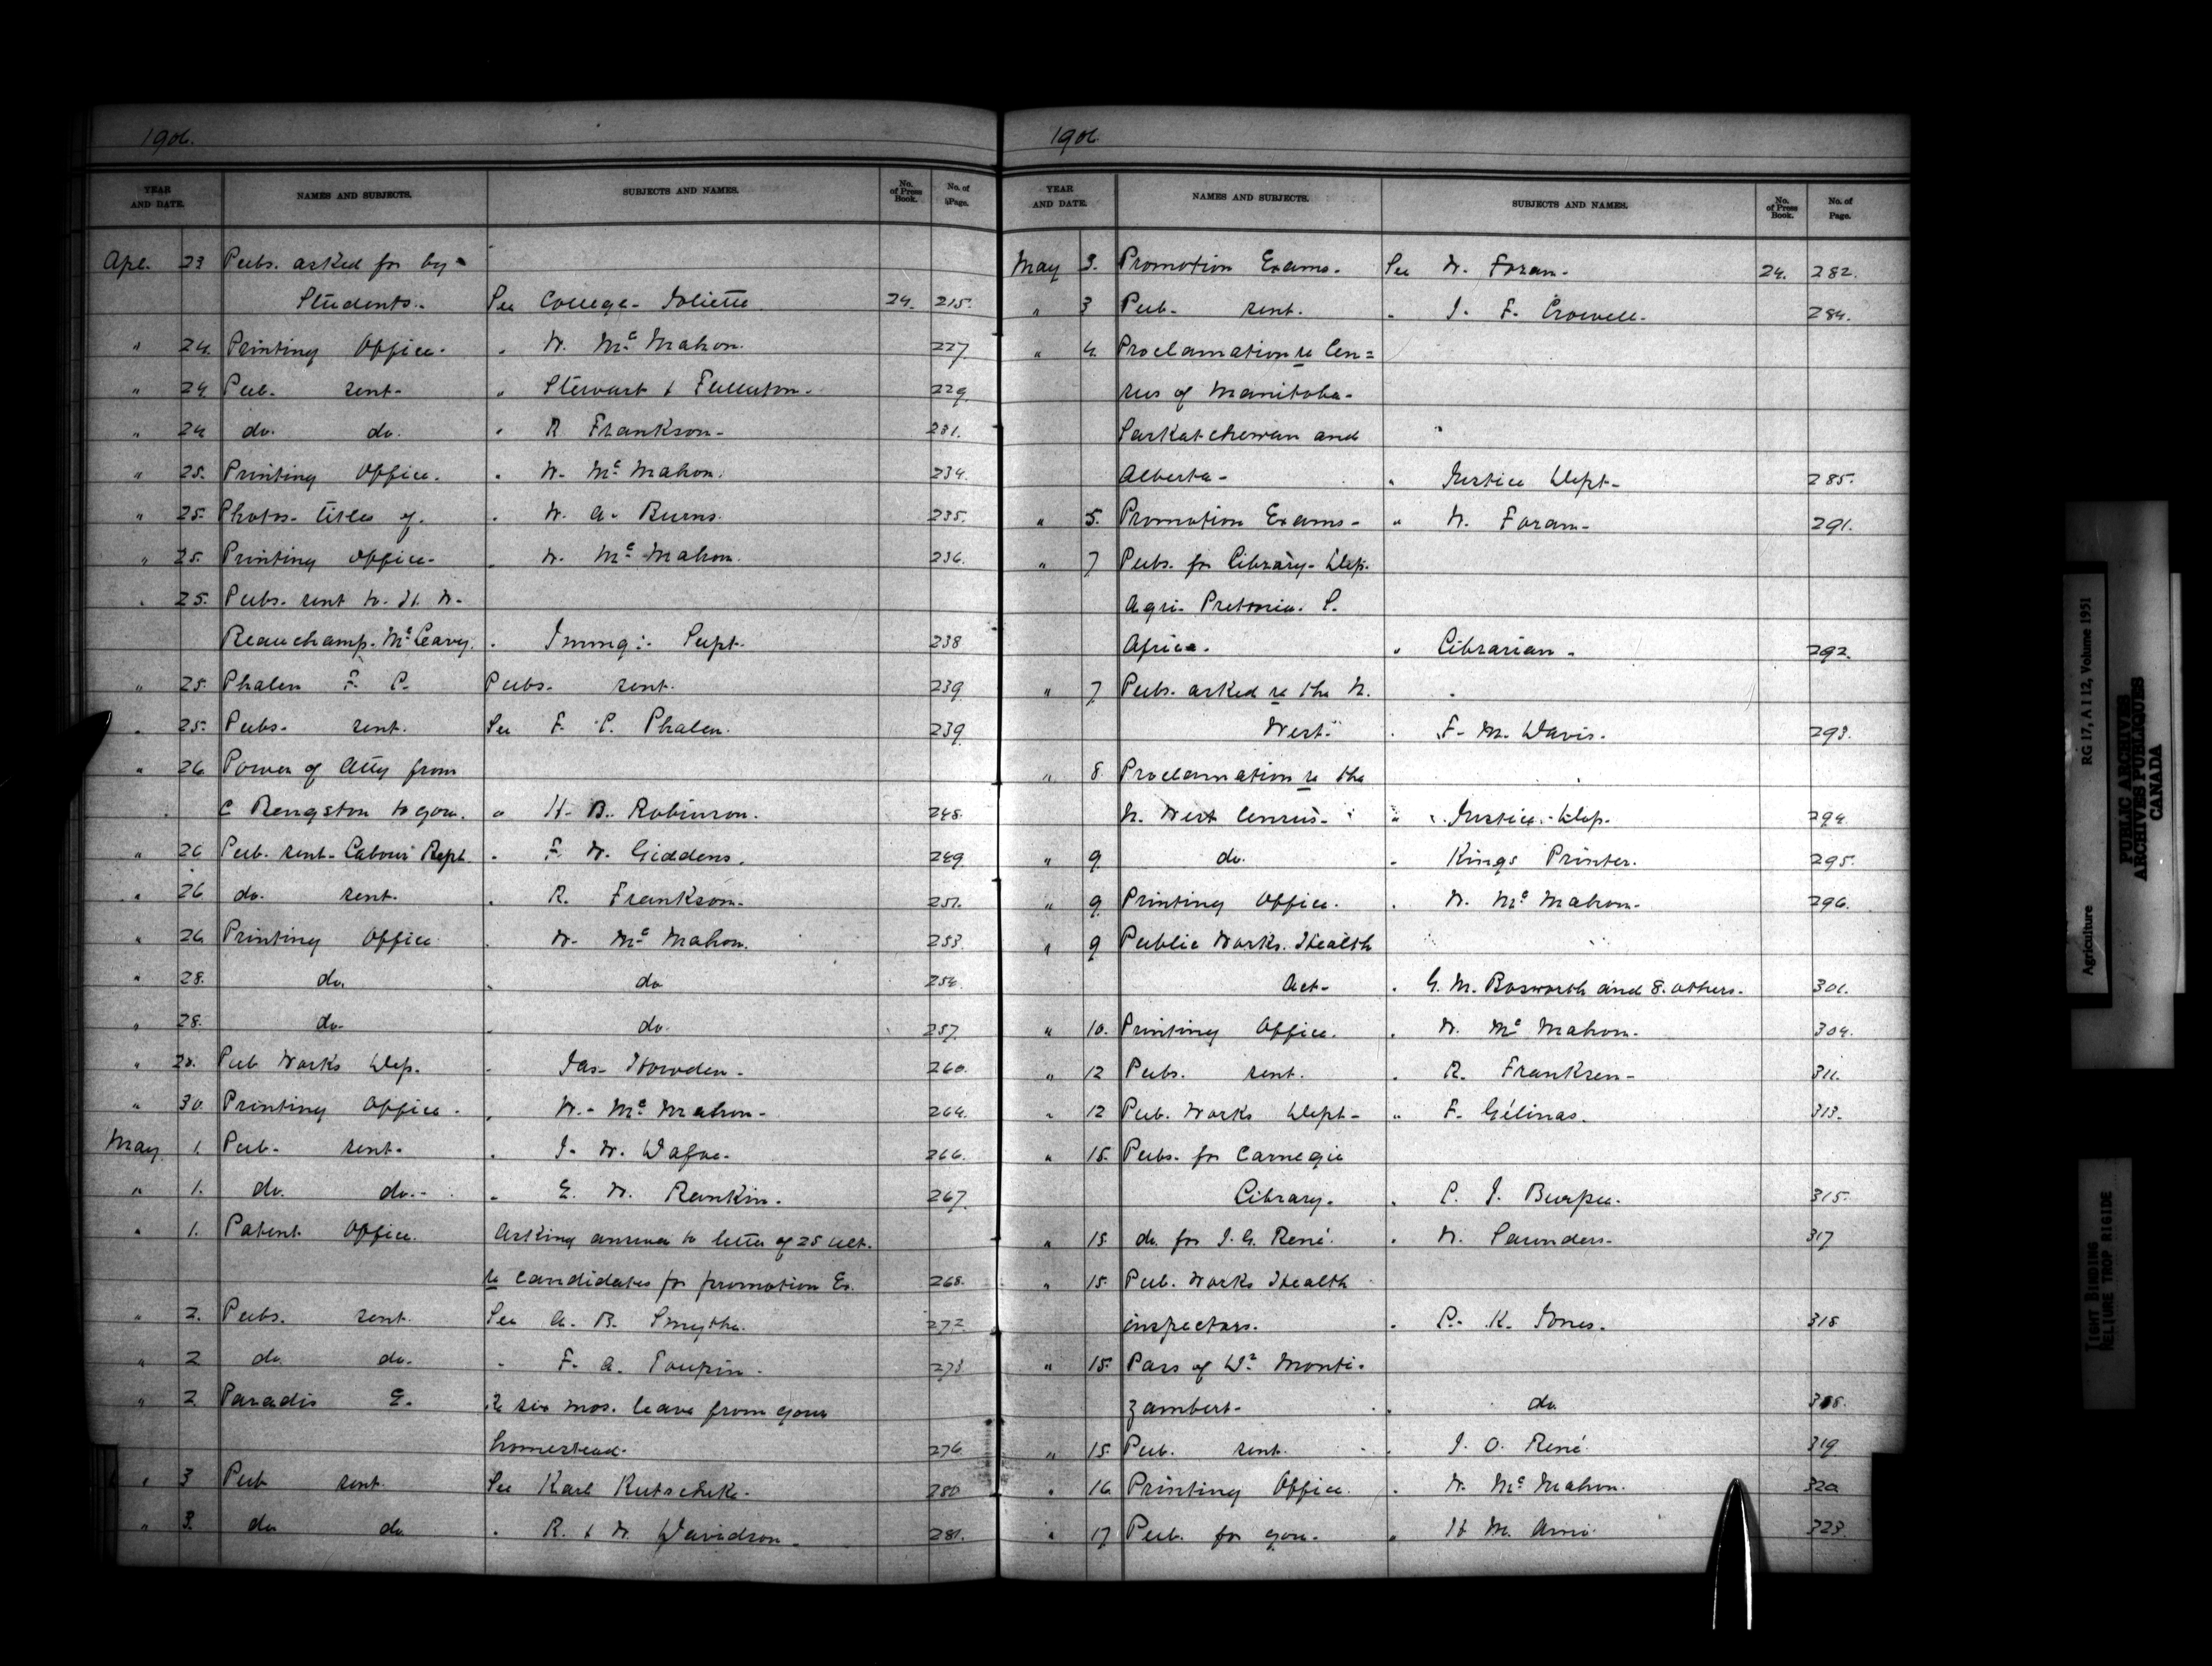 1906.
YEAR AND DATE. NAMES AND SUBJECTS. SUBJECTS AND NAMES. No. of Press Book. No. of Page.
Apl. 23 Pubs. asked for by
Students. See College - Joliette. 24. 215.
" 24. Printing Office. " W. McMahon. 227.
" 24. Pub. sent. " Stewart & Fullerton. 229.
" 24 do. do. " R Frankson. 231.
" 25. Printing Office. " W. McMahon. 234.
" 25. Photos. titles of. " W. A. Burns. 235.
" 25. Printing Office. " W. McMahon. 236.
" 25. Pubs. sent to H. W.
Beauchamp. McLeary. " Immig: Supt. 238
" 25. Phalen F. P. Pubs. sent. 239
" 25. Pubs. sent. See F. P. Phalen. 239.
" 26. Power of Atty from
C Rengston to yow. " H. B. Robinson. 248.
" 26 Pub. sent - Labour Rept. " F. W. Giddens. 249
" 26 do. sent. " R. Frankson. 251.
" 26 Printing Office. " W. McMahon. 253.
" 28. do. " do 254.
" 28. do. " do. 257.
" 28. Pub Works Dep. " Jas. Howden. 260.
" 30 Printing Office. " W. McMahon. 264.
May 1. Pub. sent. " J. W. Dafoe. 266.
" 1. do. do. " E. W. Rankin. 267.
" 1. Patent Office. Asking answer to letter of 25 ult.
re candidates for promotion Ex. 268.
" 2. Pubs. sent. See A. B. Smythe. 272
" 2 do. do. " F. A. Toupin. 273
" 2 Paradis E. Re six mos. leave from your
homestead. 276
" 3 Pub sent. See Karl Kutscheke. 280
" 3. do do " R. & W. Davidson. 281.
1906.
YEAR AND DATE. NAMES AND SUBJECTS. SUBJECTS AND NAMES. No. of Press Book. No. of Page.
May 3. Promotion Exams. See W. Foran. 24. 282.
" 3 Pub. sent. " J. F. Crowell. 284.
" 4. Proclamation re Cen=
sus of Manitoba.
Saskatchewan and
Alberta. " Justice Dept. 285.
" 5. Promotion Exams. " W. Foran. 291.
" 7 Pubs. for Library - Dep.
Agri. Pretoria. S.
Africa. " Librarian. 292.
" 7 Pubs. asked re the N.
West. " F. M. Davis. 293.
" 8. Proclamation re the
N. West Census. " Justice. Dep. 294.
" 9 do. " Kings Printer. 295.
" 9 Printing Office. " W. McMahon. 296.
" 9 Public Works. Health
Act. " G. M. Bosworth and 8. others. 301.
" 10. Printing Office. " W. McMahon. 304.
" 12 Pubs. sent. " R. Franksen. 311.
" 12 Pub. Works Dept. " F. Gélinas. 313.
" 15. Pubs. for Carnegie
Library. " L. J. Burpee. 315.
" 15 do. for J. G. René. " W. Saunders. 317
" 15 Pub. Works Health
inspectors. " P. K. Jones. 318
" 15. Pass of Dr Monti=
zambert. " do. 318.
" 15. Pub. sent. " J. O. René. 319
" 16. Printing Office. " W. McMahon. 320
" 17 Pub. for you. " H M. Ami. 323.
Agriculture RG 17, A I 12, Volume 1951
PUBLIC ARCHIVES
ARCHIVES PUBLIQUES
CANADA
TIGHT BINDING
RELIURE TROP RIGIDE